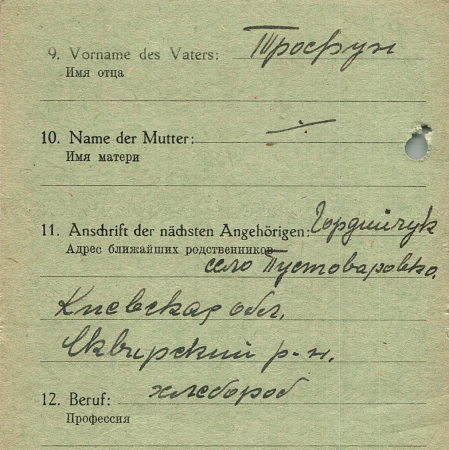 9. Vorname des Vaters: Трофун
Имя отца
10. Name der Mutter: ÷
Имя матери
11. Anschrift der nächsten Angehörigen: Гордийчук
Адрес ближайших родственников
село Пустоваровка.
Киевская обл.
Сквирский р-н.
12. Beruf: хлебороб
Профессия